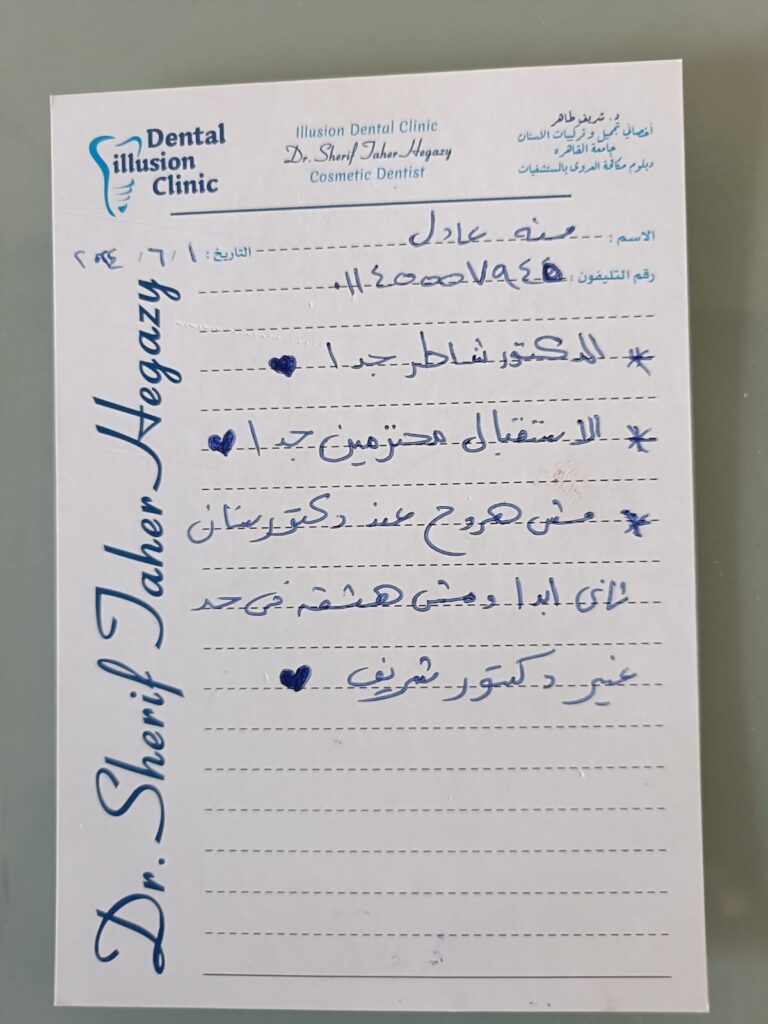 Dental
illusion
Clinic
Illusion Dental Clinic
Dr. Sherif Taher Hegazy
Cosmetic Dentist
د. شريف طاهر
أخصائي تجميل و تركيبات الاسنان
جامعة القاهره
دبلوم مكافحة العدوى بالمستشفيات
الاسم : منه عادل
التاريخ : ١ / ٦ / ٢٠٢٤
رقم التليفون : ٠١١٤٥٥٥٧٩٤٥
* الدكتور شاطر جدا
* الاستقبال محترمين جدا
* مش هروح عند دكتور سنان
تانى ابدا ومش هثقه فى حد
غير دكتور شريف
Dr. Sherif Taher Hegazy